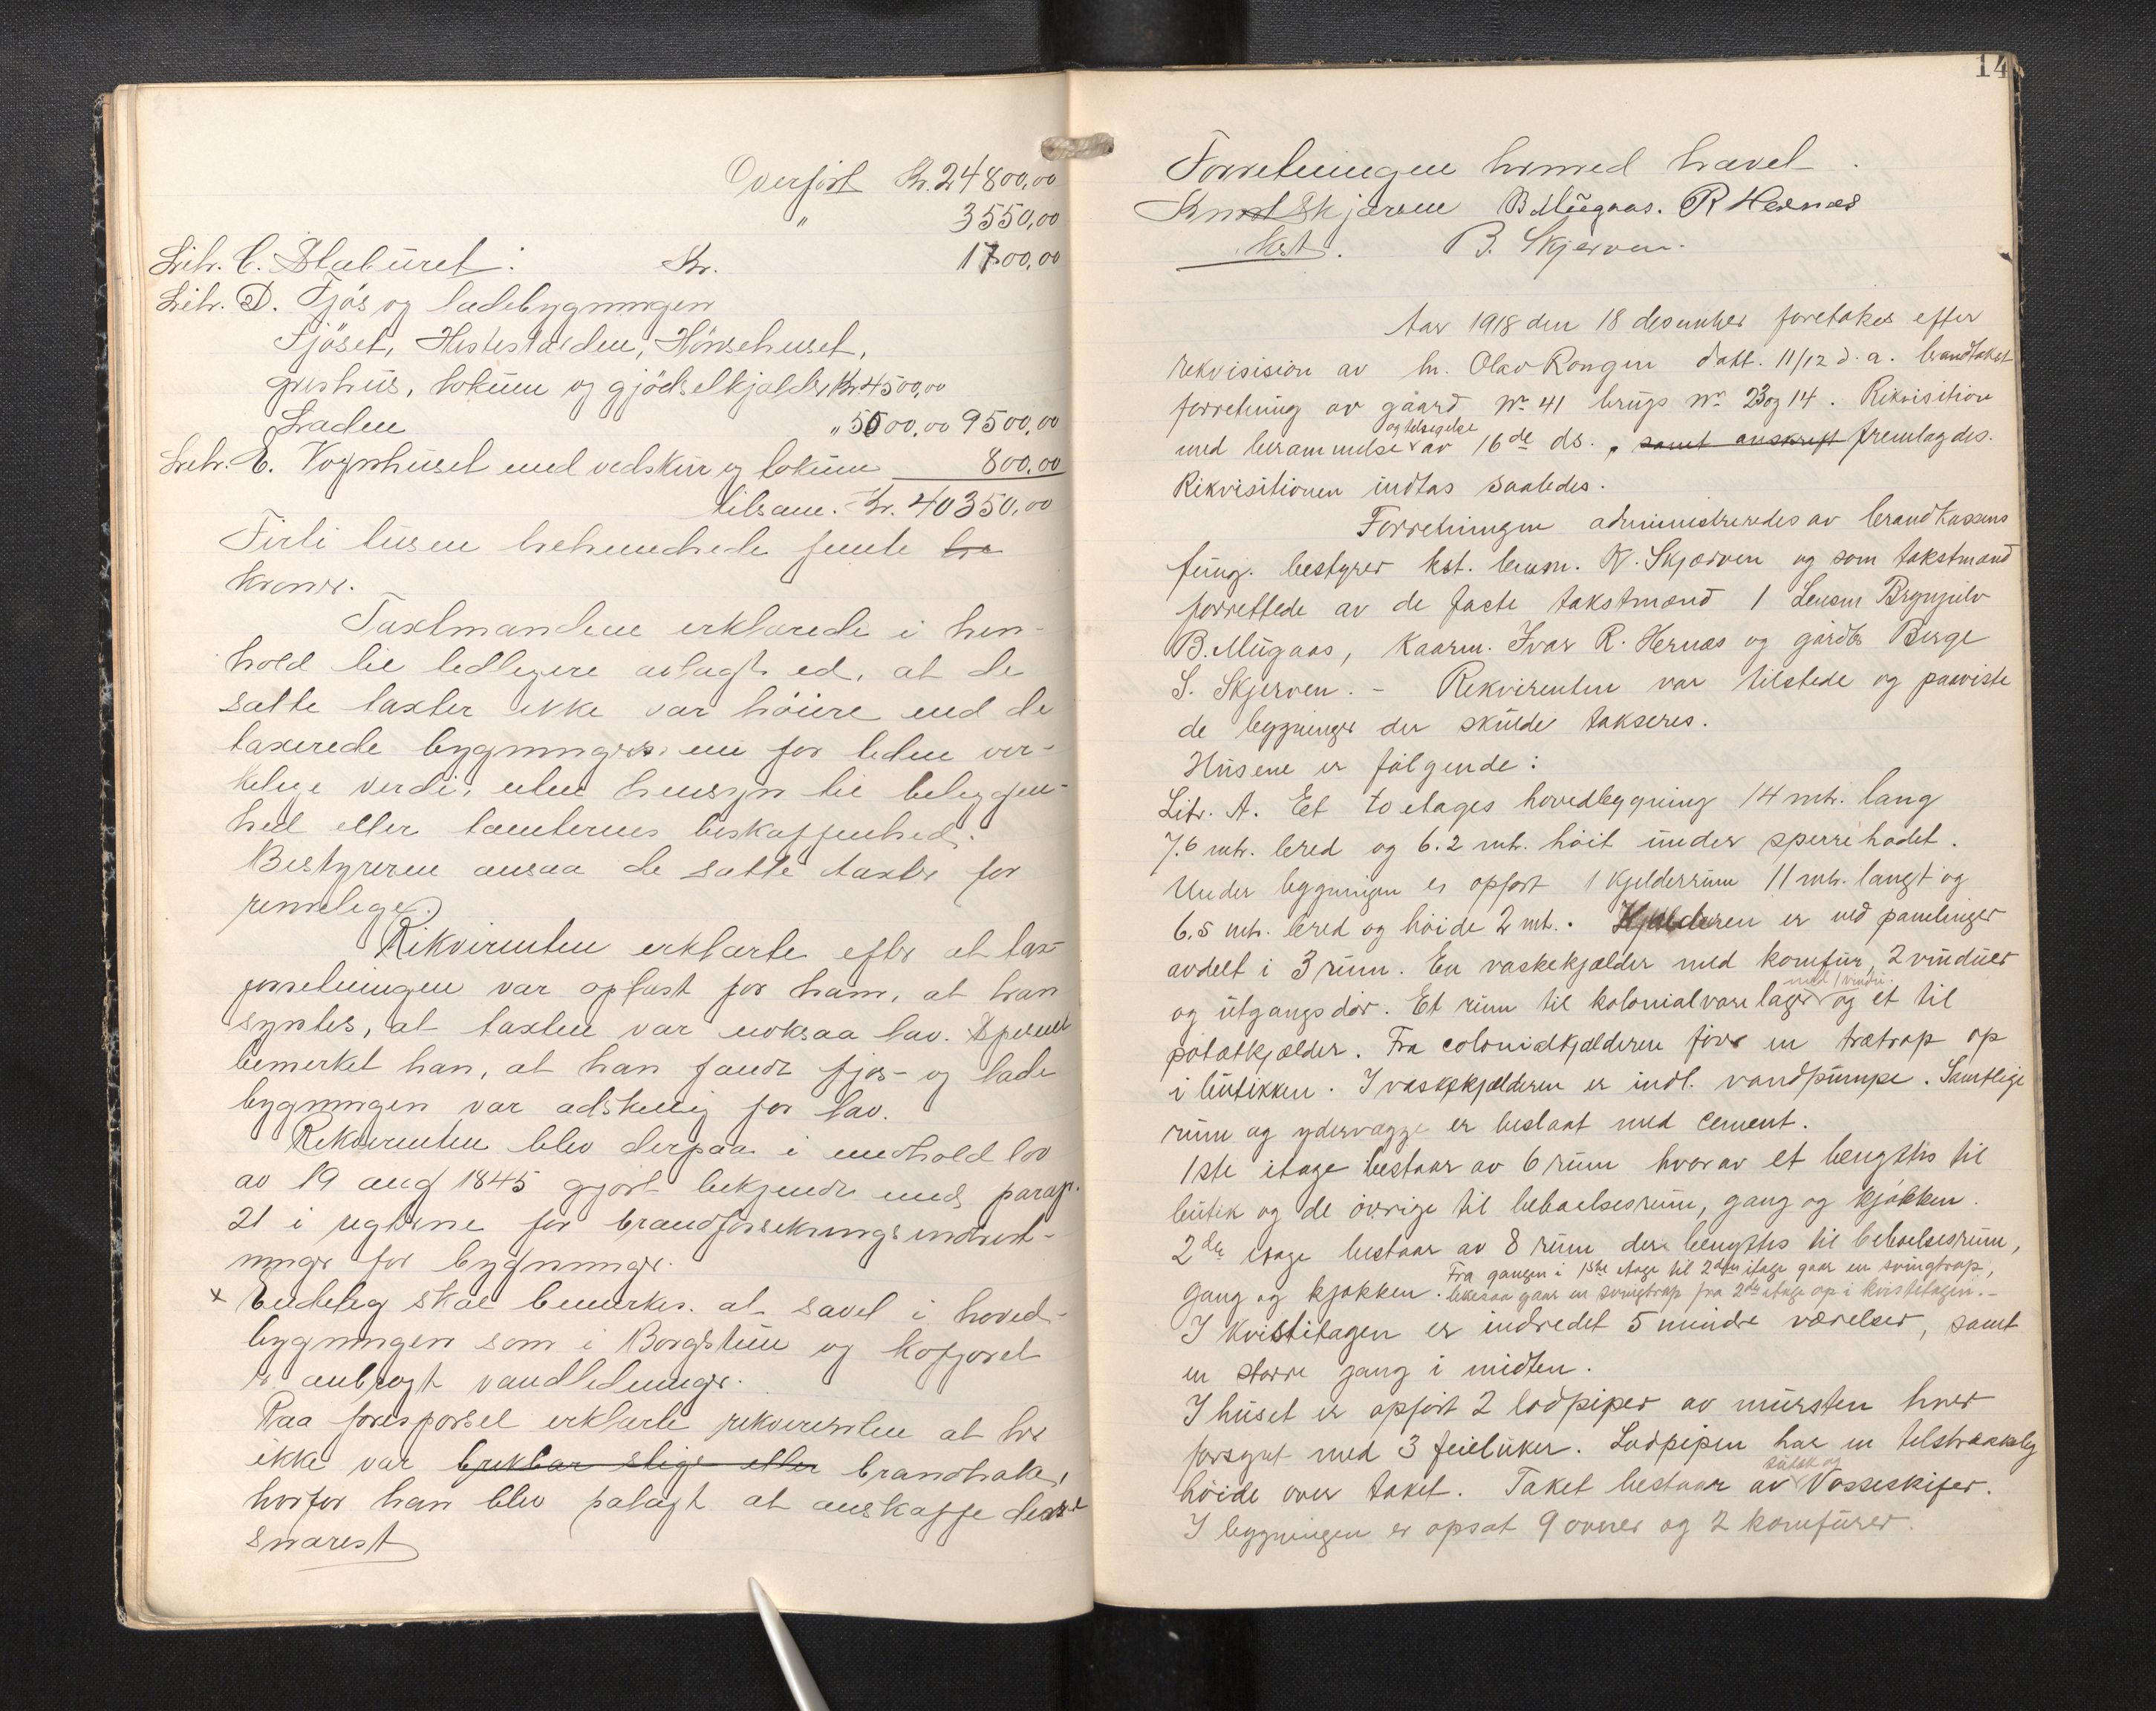 Overført Kr. 24800,00
" 3550,00
Litr. C. Staburet. Kr. 1700,00
Litr. D. Fjøs og ladebygningen
Fjöset, Hestestalden, Hönsehuset,
grishus, lokum og gjödselkjelder Kr. 4500,00
Laden " 5000,00 9500,00
Litr. E. Vognhuset med vedskur og lokum 800,00
tilsam. Kr. 40350,00
Firti tusen trehundrede femti
kroner.
Taxtmændene erklærede i hen-
hold til tidligere avlagt ed, at de
satte taxter ikke var höiere end de
taxerede bygningers nu for tiden vir-
kelige verdi, uten hensyn til beliggen-
hed eller tomternes beskaffenhed.
Bestyreren ansaa de satte taxter for
rimelige.
Rikvirenten erklærte efter at tax-
forretningen var oplæst for ham, at han
syntes, at taxten var noksaa lav. Specielt
bemerket han, at han fandt fjøs- og lade
bygningen var adskillig for lav.
Rekvirenten blev derpaa i medhold lov
av 19 aug 1845 gjort bekjendt med parag.
21 i reglerne for brandforsikringsindret-
ninger for bygninger.
x Endelig skal bemerkes. at savel i hoved-
bygningen som i Borgstun og kaffjoret
er anbragt vandledninger.
Paa forespørsel erklærte rekvirenten at der
ikke var brukbar stige eller brandhake,
hvorfor han blev palagt at anskaffe desse
snarest
14
Forretningen hermed hævet.
Knut Skjærven B Mügaas. R Hernæs
kst. B. Skjerven.
Aar 1918 den 18 desember foretokes efter
rekvisision av hr. Olav Rongen datt. 11/12 d. a. brandtakst
forretning av gaard No 41 brugs No 23 og 14. Rikvisition
og tilsigelse
med berammelse av 16de ds., samt anskrift fremlagdes.
Rikvisitionen indtas saaledes.
Forretningen administreredes av brandkassens
fung. bestyrer kst. lensm. K. Skjærven og som takstmænd
forrettede av de faste takstmænd 1 Lensm Brynjulv
B. Mügaas, Kaarm. Ivar R. Hernæs og gårdbr Berge
S. Skjerven. - Rekvirenten var tilstede og paaviste
de bygninger der skulde takseres.
Husene er følgende:
Litr. A. Et to etages hovedbygning 14 mtr. lang
7.6 mtr. bred og 6.2 mtr. höit under sperrehodet.
Under bygningen er opført 1 kjelderrum 11 mtr. langt og
6.5 mtr. bred og höide 2 mt.. Kjælderen er ved panelinger
avdelt i 3 rum. En vaskekjælder med komfur, 2 vinduer
med 1 vindu
og utgangsdör. Et rum til kolonialvare lager og et til
potetkjælder. Fra colonialkjælderen förer en trætrap op
i butikken. I vaskekjælderen er indl. vandpumpe. Samtlige
rum og ydervægge er beslaat med cement.
1ste etage bestaar av 6 rum hvorav et bengttes til
butik og de övrige til beboelsesrum, gang og kjøkken.
2den etage bestaar av 8 rum der bengttes til beboelsesrum,
Fra gangen i 1ste etage til 2den etage gaar en svingtrap,
gang og kjøkken. likesaa gaar en svingtrap fra 2de etage op i kvistetagen.-
I Kvistetagen er indredet 5 mindre værelser, samt
en större gang i midten.
I huset er opført 2 lodpiper av mursten hver
forsynt med 3 feieluker. Lodpipen har en tilstrækkelig
höide over taket. Taket bestaar av Vosseskifer.
I bygningen er opsat 9 ovner og 2 komfurer.